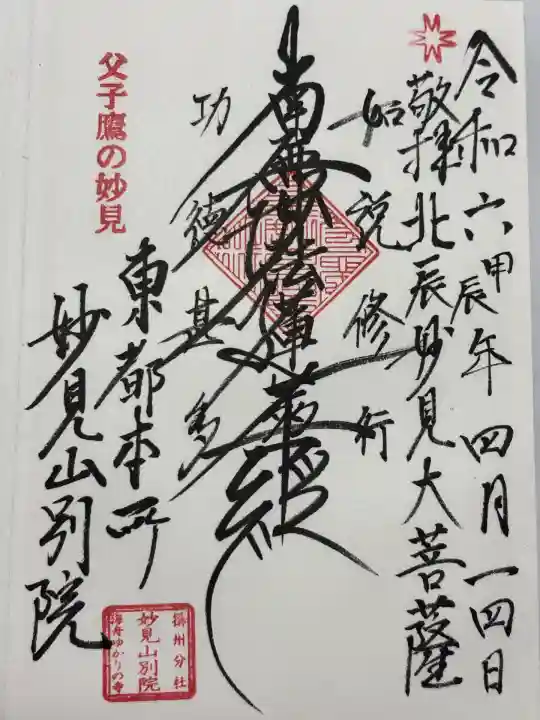 令和六甲辰年四月一四日
敬拝北辰妙見大菩薩
如説修行
南無妙法蓮華経
功徳甚多
東都本所
妙見山別院
父子鷹の妙見
摂州分社
妙見山別院
海舟ゆかりの寺